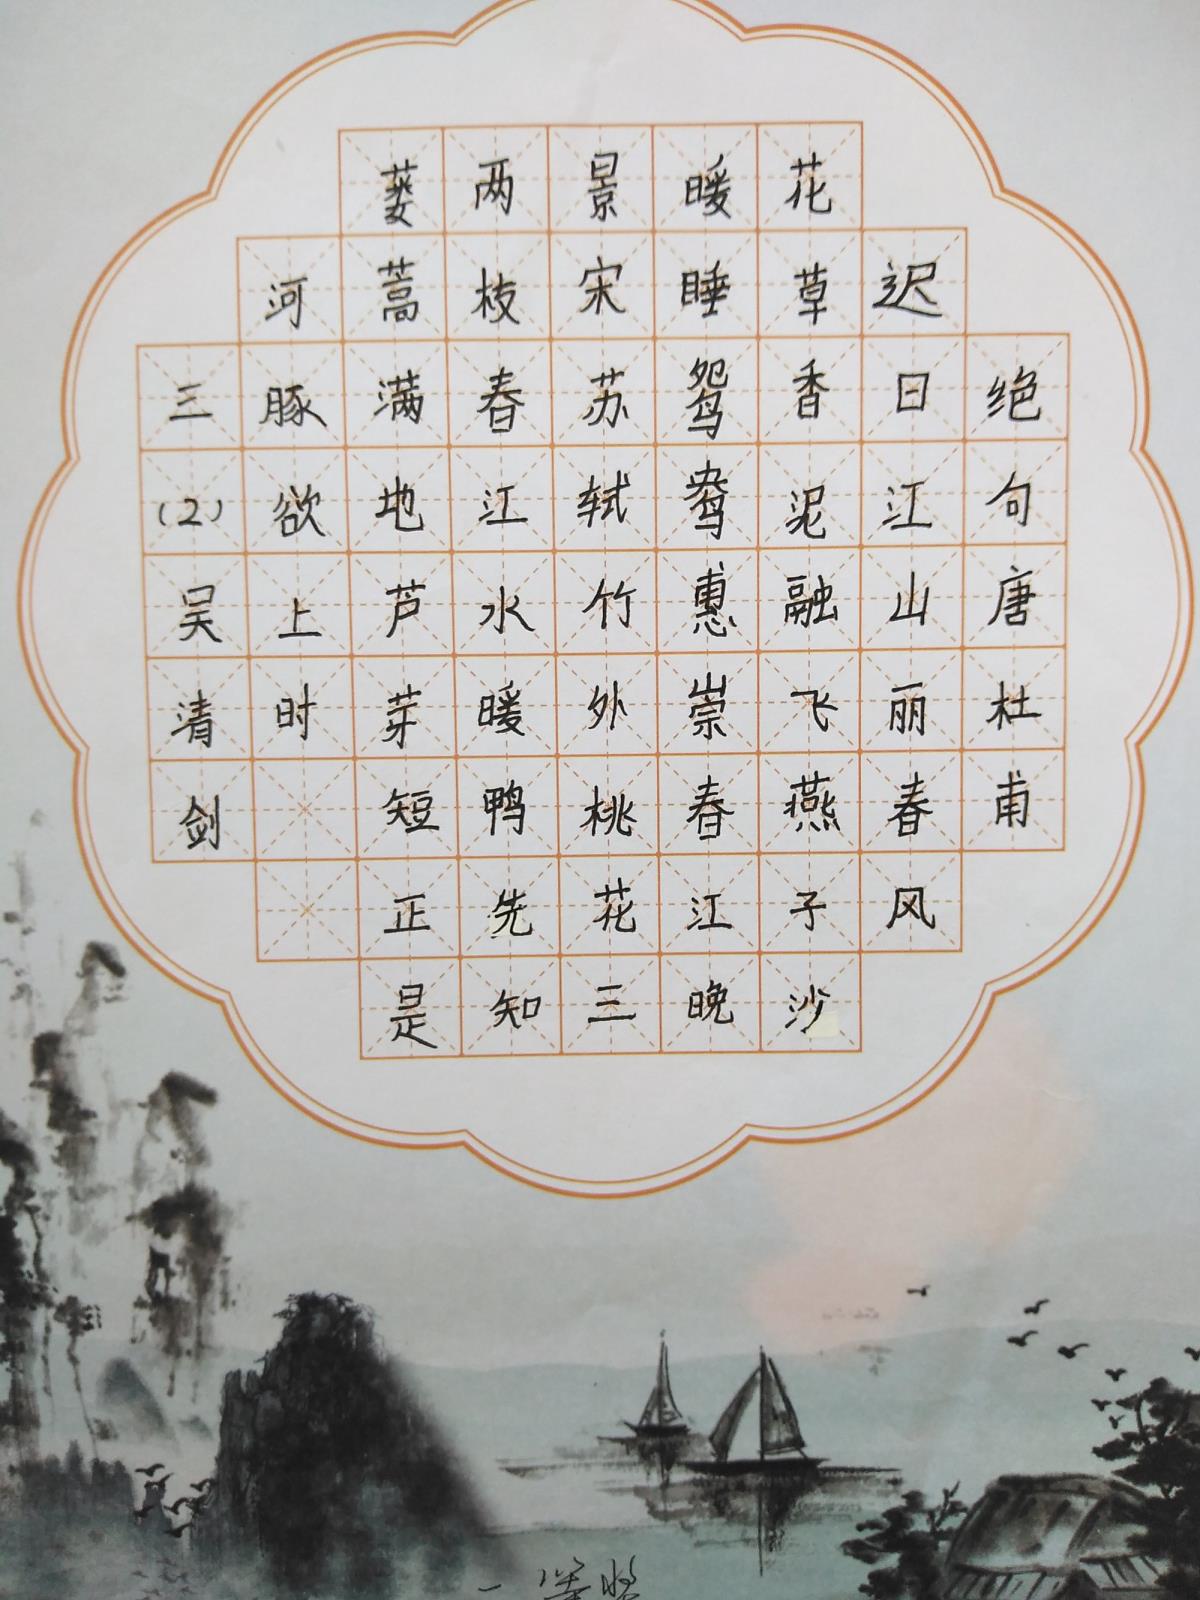 绝句唐杜甫
迟日江山丽春风
花草香泥融飞燕子沙
暖睡鸳鸯惠崇春江晚
景宋苏轼竹外桃花三
两枝春江水暖鸭先知
蒌蒿满地芦芽短正是
河豚欲上时
三(2)吴清剑
一等奖